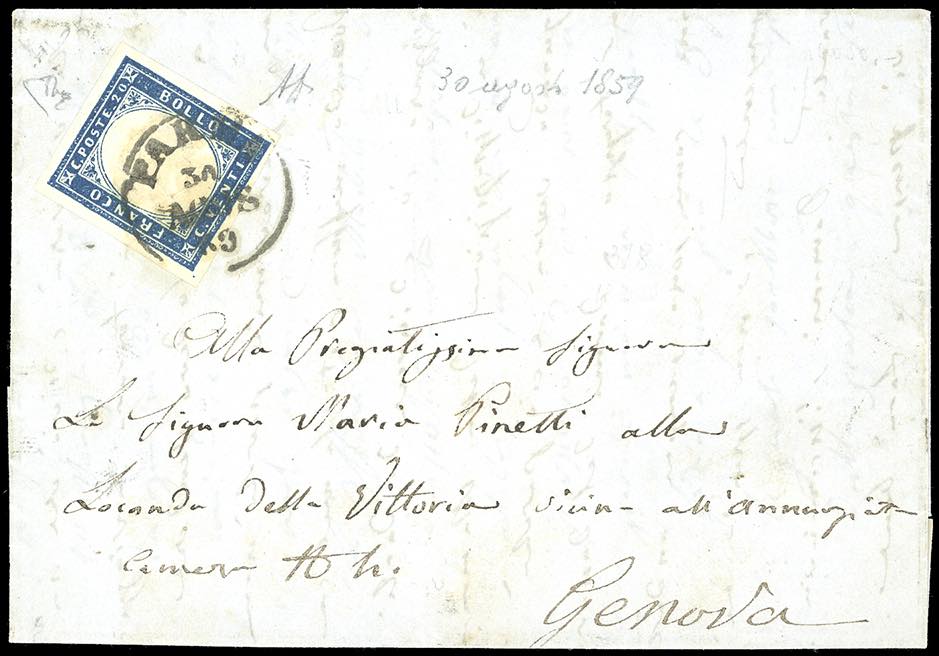 30 agosto 1859
BOLLO
C. POSTE. 20
FRANCO
C. VENTI
PAR
Alla Pregiatissima Signora
La Signora Maria Pinetti alla
Locanda della Vittoria vicina all'Annunziata
Camera
Genova